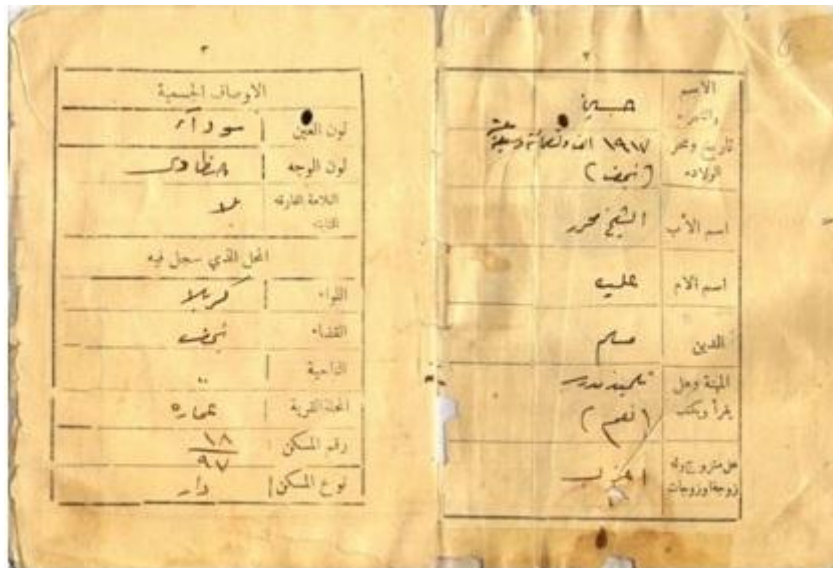 ٢
الاسم والشهرة حسين
تاريخ ومحل ١٩١٧ الف وتسعمائة وسبعة عشر
الولاده (نجف)
اسم الأب الشيخ
اسم الام
الدين مسلم
المهنة وهل تلميذ مدرسه
يقرأ ويكتب (نعم)
هل متزوج وله اعزب
زوجة او زوجات
٣
الاوصاف الجسمية
لون العين سوداء
لون الوجه حنطاوي
العلامة الفارقة الثابتة بلا
المحل الذي سجل فيه
اللواء كربلا
القضاء نجف
الناحية ..
المحلة القرية عماره
رقم المسكن ١٨
٩٧
نوع المسكن دار